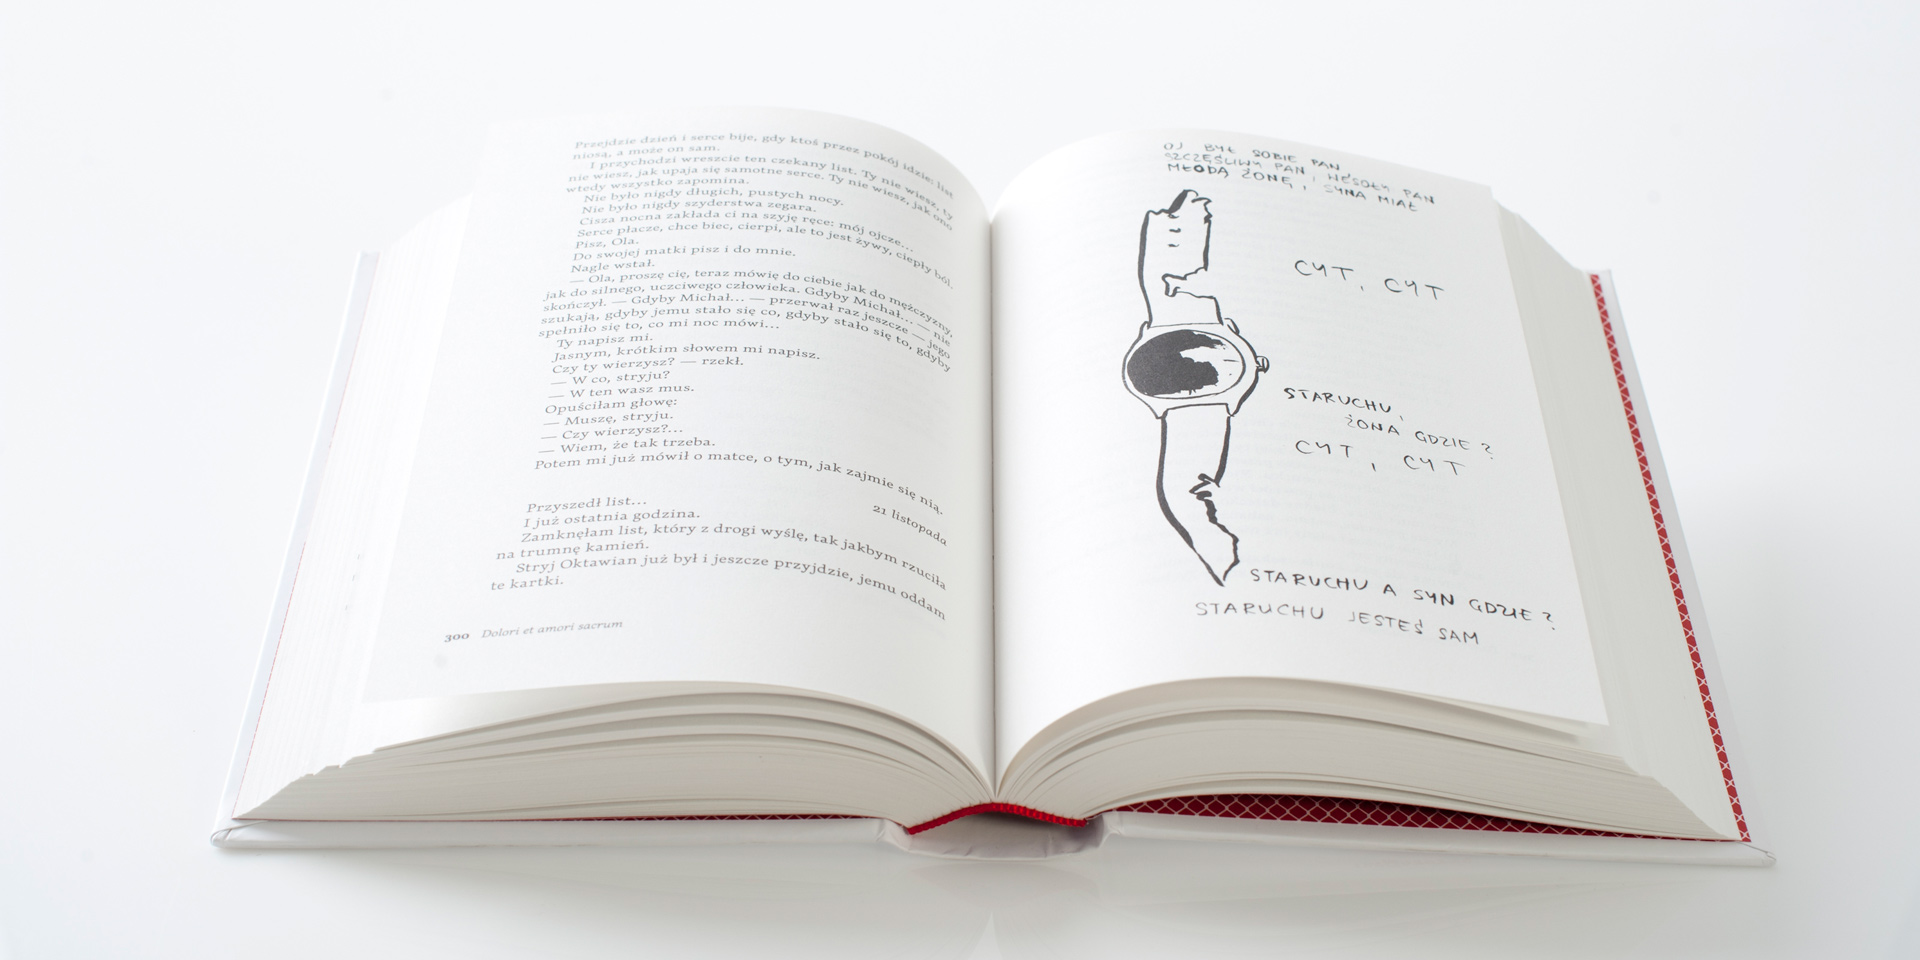 Przejdzie dzień i serce bije, gdy ktoś przez pokój idzie: list
niosą, a może on sam.
I przychodzi wreszcie ten czekany list. Ty nie wiesz, ty
nie wiesz, jak upaja się samotne serce. Ty nie wiesz, jak ono
wtedy wszystko zapomina.
Nie było nigdy długich, pustych nocy.
Nie było nigdy szyderstwa zegara.
Cisza nocna zakłada ci na szyję ręce: mój ojcze...
Serce płacze, chce biec, cierpi, ale to jest żywy, ciepły ból.
Pisz, Ola.
Do swojej matki pisz i do mnie.
Nagle wstał.
— Ola, proszę cię, teraz mówię do ciebie jak do mężczyzny,
jak do silnego, uczciwego człowieka. Gdyby Michał... — nie
skończył. — Gdyby Michał... — przerwał raz jeszcze — jego
szukają, gdyby jemu stało się co, gdyby stało się to, gdyby
spełniło się to, co mi noc mówi...
Ty napisz mi.
Jasnym, krótkim słowem mi napisz.
Czy ty wierzysz? — rzekł.
— W co, stryju?
— W ten wasz mus.
Opuściłam głowę:
— Muszę, stryju.
— Czy wierzysz?...
— Wiem, że tak trzeba.
Potem mi już mówił o matce, o tym, jak zajmie się nią.
21 listopada
Przyszedł list...
I już ostatnia godzina.
Zamknęłam list, który z drogi wyślę, tak jakbym rzuciła
na trumnę kamień.
Stryj Oktawian już był i jeszcze przyjdzie, jemu oddam
te kartki.
300 Dolori et amori sacrum
OJ BYŁ SOBIE PAN
SZCZĘŚLIWY PAN, WESOŁY PAN
MŁODĄ ŻONĘ, SYNA MIAŁ
CYT, CYT
STARUCHU,
ŻONA GDZIE?
CYT, CYT
STARUCHU A SYN GDZIE?
STARUCHU JESTEŚ SAM